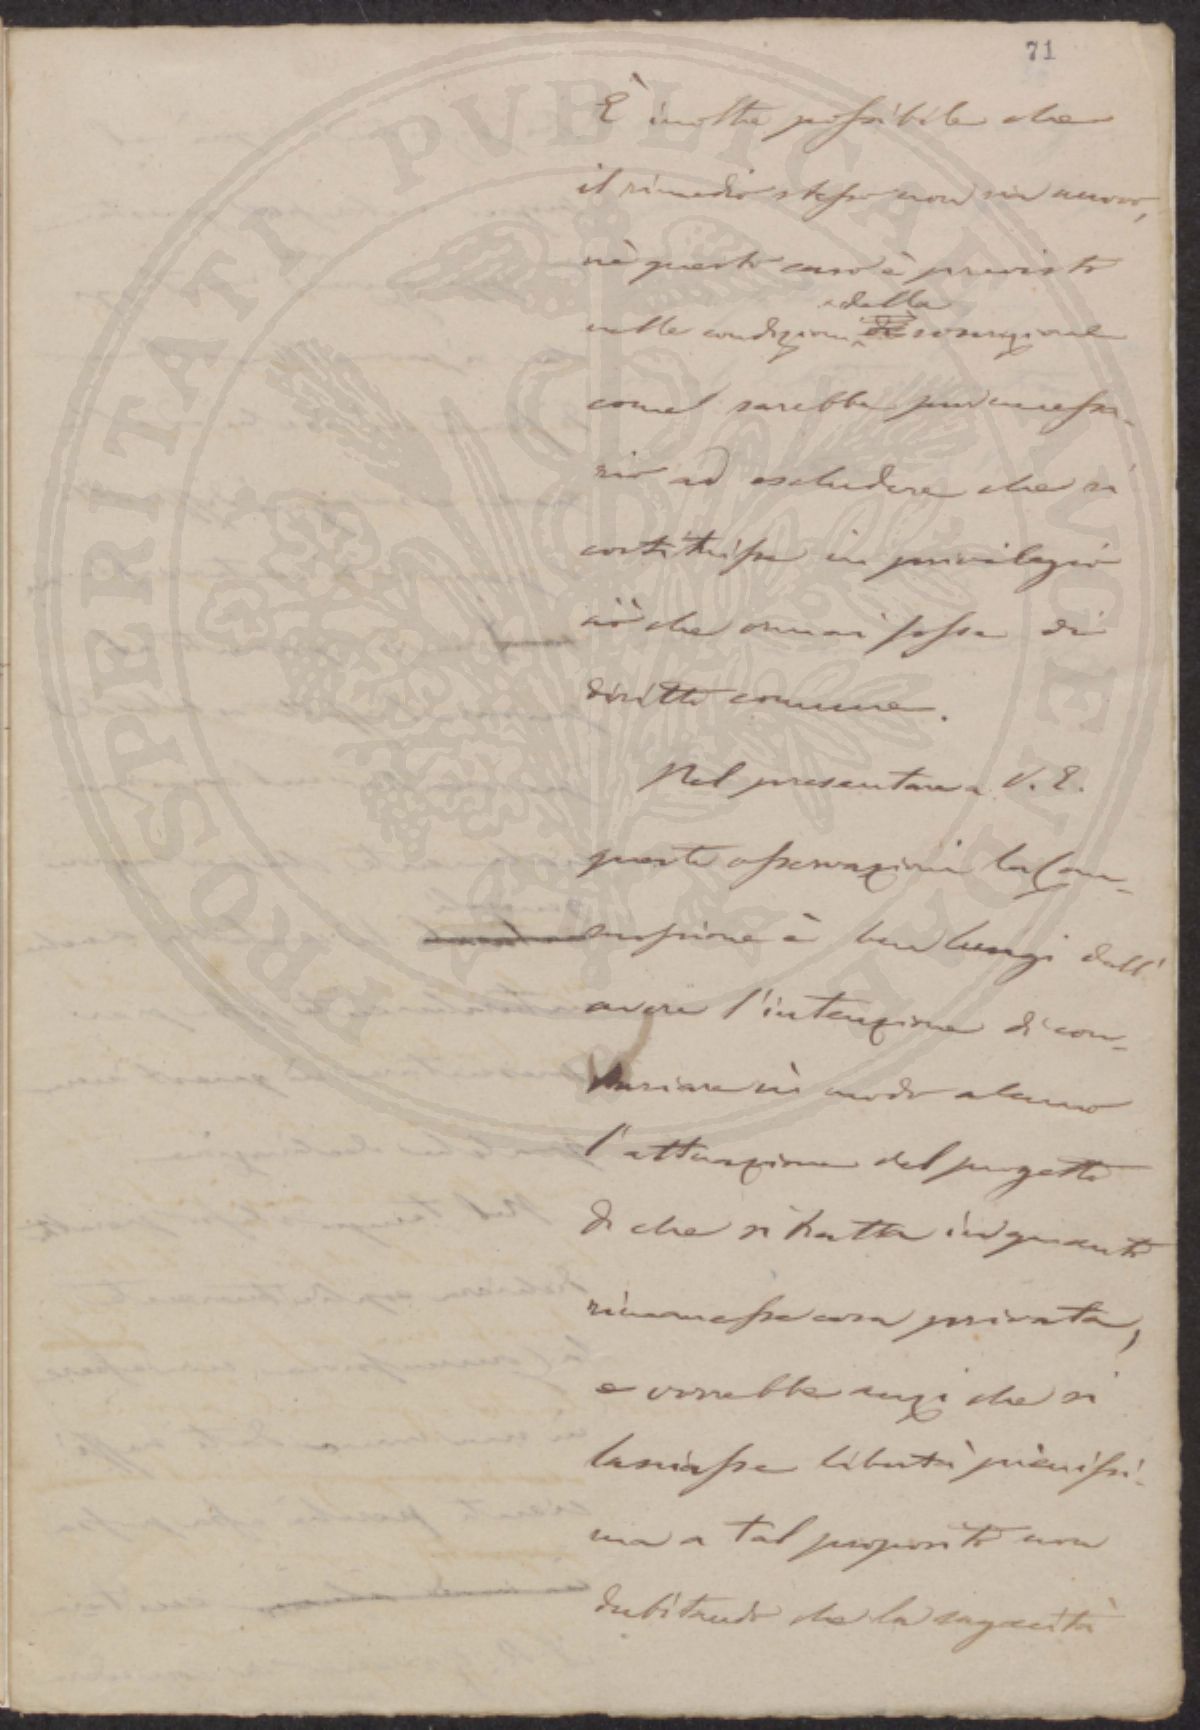 71
È inoltre possibile che
il rimedio stesso non sia nuovo,
nè questo caso è previsto
della
nelle condizioni di concessione
come sarebbe pur necessa-
rio ad escludere che si
costituisse in privilegio
ciò che omai fosse di
diritto comune.
Nel presentare a V. E.
queste osservazioni la Com-
missione è ben lungi dall'
avere l'intenzione di con-
trariare in modo alcuno
l'attuazione del progetto
di che si tratta in quanto
rimanesse cosa privata,
e vorrebbe anzi che si
lasciasse libertà pienissi-
ma a tal proposito non
dubitando che la sagacità
PROSPERITATI PVBLICAE AVGENDAE